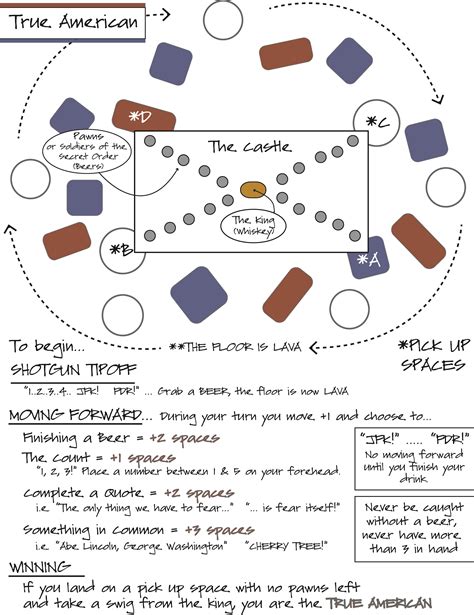 True American
*D
*C
Pawns
or Soldiers of the
Secret Order
(Beers)
The Castle
The King
(Whiskey)
*B
*A
To begin...
**THE FLOOR IS LAVA
*PICK UP
SPACES
SHOTGUN TIPOFF
"1..2..3..4.. JFK! FDR!" ... Grab a BEER, the floor is now LAVA
MOVING FORWARD... During your turn you move +1 and choose to...
Finishing a Beer = +2 spaces
The Count = +1 spaces
"1, 2, 3!" Place a number between 1 & 5 on your forehead.
Complete a Quote = +2 spaces
i.e. "The only thing we have to fear..." "... is fear itself!"
Something in Common = +3 spaces
i.e. "Abe Lincoln, George Washington" "CHERRY TREE!"
"JFK!" ..... "FDR!"
No moving forward
until you finish your
drink
Never be caught
without a beer,
never have more
than 3 in hand
WINNING
If you land on a pick up space with no pawns left
and take a swig from the king, you are the TRUE AMERICAN